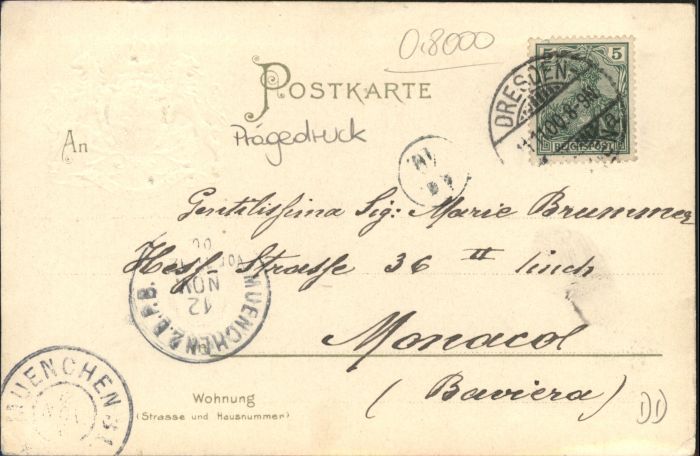 0.8000
5 5
REICHSPOST
DRESDEN
.11.00.8-9N.
POSTKARTE
An
Prägedruck
Gentilissima Sig: Marie Brummer
Hess Strasse 36 II linch
Monacol
(Baviera)
MUENCHEN 2. B.P.B.
12
NOV
MUENCHEN 31
Wohnung
(Strasse und Hausnummer)
DD